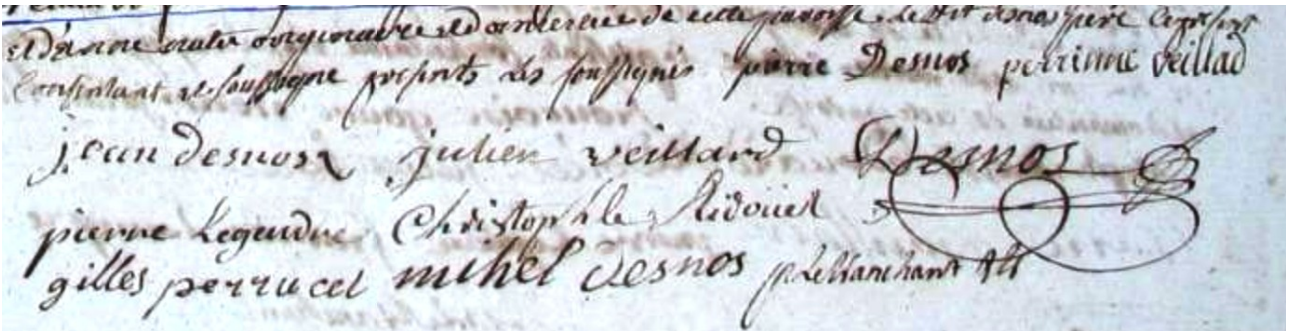 originaire et domiciliée de cette paroisse. Le dit desnos père
consentant et soussigné presents les soussignés pierre Desnos perrinne veillard
jean desnos julien veillard Desnos
pierre Legendre Christophle Ridouel
gilles perrucel mihel desnos